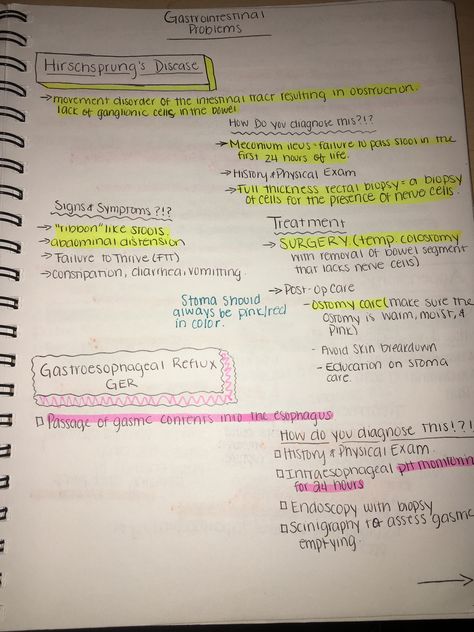 Gastrointestinal
Problems
Hirschsprung's Disease
→ movement disorder of the intestinal tract resulting in obstruction.
lack of ganglionic cells in the bowel
How Do you diagnose this?!?
→ Meconium ileus = failure to pass stool in the
first 24 hours of life.
→ History & Physical Exam
→ Full thickness rectal biopsy = a biopsy
of cells for the presence of nerve cells.
Signs & Symptoms ?!?
→ "ribbon" like stools
→ abdominal distension
→ Failure to Thrive (FTT)
→ constipation, diarrhea, vomitting
Treatment
→ SURGERY (temp. colostomy
with removal of bowel segment
that lacks nerve cells)
→ Post-op care
- ostomy care (make sure the
ostomy is warm, moist, &
pink)
- Avoid skin breakdown
- Education on stoma
care.
Stoma should
always be pink/red
in color.
Gastroesophageal Reflux
GER
□ Passage of gastric contents into the esophagus
How do you diagnose this!?!
□ History & Physical Exam
□ Intraesophageal pH monitorin
for 24 hours
□ Endoscopy with biopsy
□ Scinigraphy to assess gastric
emptying.
→